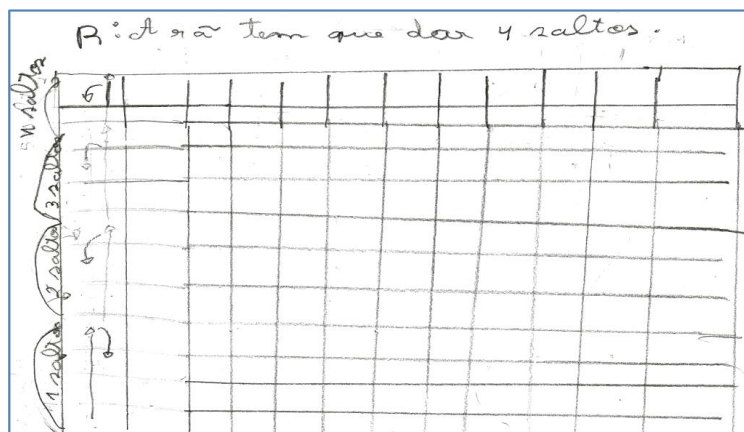 R: A rã tem que dar 4 saltos.
3 saltos
2 saltos
1 saltos